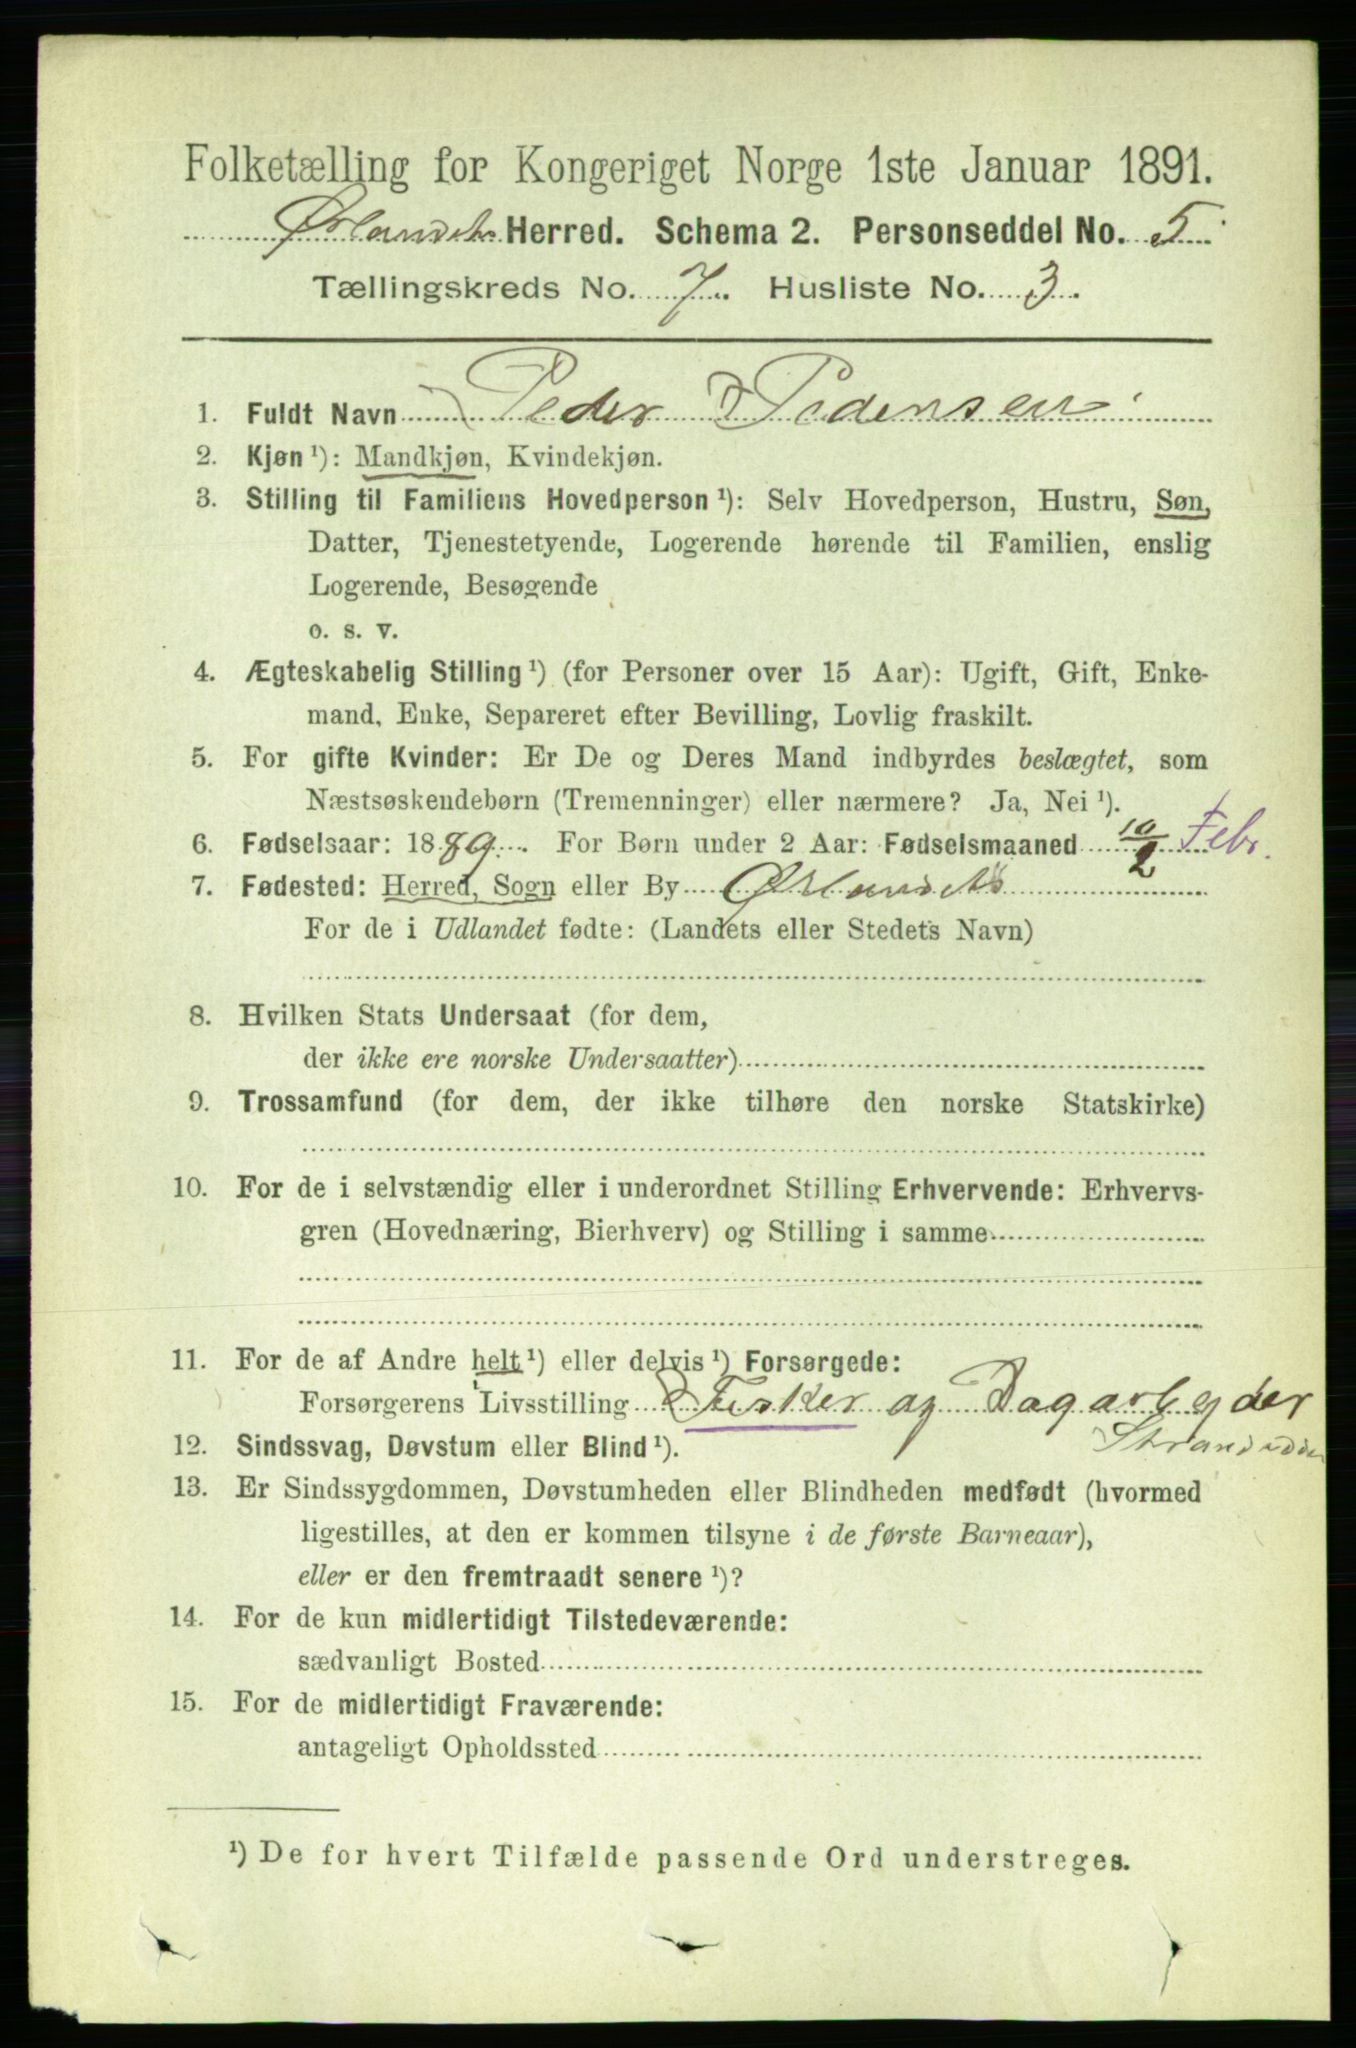 Folketælling for Kongeriget Norge 1ste Januar 1891.
Ørlandets Herred. Schema 2. Personseddel No. 5.
Tællingskreds No. 7. Husliste No. 3.
1. Fuldt Navn Peder Pedersen
2. Kjøn ¹): Mandkjøn, Kvindekjøn.
3. Stilling til Familiens Hovedperson ¹): Selv Hovedperson, Hustru, Søn,
Datter, Tjenestetyende, Logerende hørende til Familien, enslig
Logerende, Besøgende
o. s. v.
4. Ægteskabelig Stilling ¹) (for Personer over 15 Aar): Ugift, Gift, Enke-
mand, Enke, Separeret efter Bevilling, Lovlig fraskilt.
5. For gifte Kvinder: Er De og Deres Mand indbyrdes beslægtet, som
Næstsøskendebørn (Tremenninger) eller nærmere? Ja, Nei ¹).
6. Fødselsaar: 1889. For Børn under 2 Aar: Fødselsmaaned 10/2 Febr.
7. Fødested: Herred, Sogn eller By Ørlandets
For de i Udlandet fødte: (Landets eller Stedets Navn)
8. Hvilken Stats Undersaat (for dem,
der ikke ere norske Undersaatter)
9. Trossamfund (for dem, der ikke tilhøre den norske Statskirke)
10. For de i selvstændig eller i underordnet Stilling Erhvervende: Erhvervs-
gren (Hovednæring, Bierhverv) og Stilling i samme
11. For de af Andre helt ¹) eller delvis ¹) Forsørgede:
Forsørgerens Livsstilling Fisker og Dagarbeider
12. Sindssvag, Døvstum eller Blind ¹).
13. Er Sindssygdommen, Døvstumheden eller Blindheden medfødt (hvormed
ligestilles, at den er kommen tilsyne i de første Barneaar),
eller er den fremtraadt senere ¹)?
14. For de kun midlertidigt Tilstedeværende:
sædvanligt Bosted
15. For de midlertidigt Fraværende:
antageligt Opholdssted
¹) De for hvert Tilfælde passende Ord understreges.